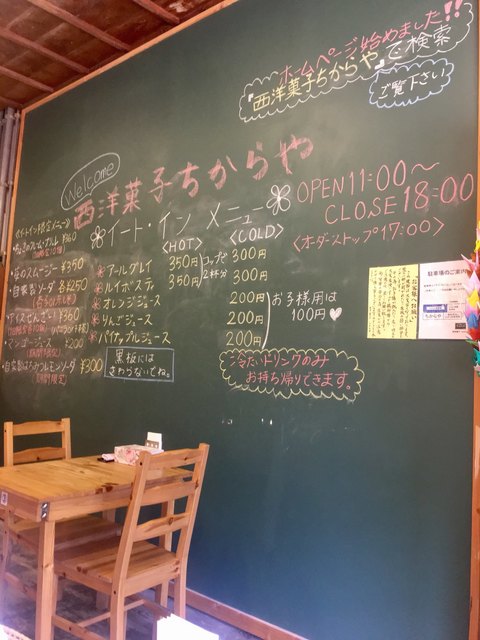 ホームページ始めました!!
『西洋菓子ちからや』で検索
ご覧下さい
Welcome
西洋菓子ちからや
イート・イン メニュー
OPEN 11:00～
CLOSE 18:00
〈オーダーストップ17:00〉
〈HOT〉 〈COLD〉
アールグレイ 350円 300円
ルイボスティ 350円 300円
コップ 2杯分
オレンジジュース 200円
りんごジュース 200円
パイナップルジュース 200円
お子様用は
100円
冷たいドリンクのみ
お持ち帰りできます。
黒板には
さわらないでね。
〈イートイン限定メニュー〉
¥360
苺のスムージー ¥350
・自家製ソーダ 各¥250
・アイスぜんざい ¥360
・マンゴージュース ¥200
(期間限定)
・自家製はちみつレモンソーダ ¥300
(期間限定)
お客様へお願い
駐車場のご案内
ちからや